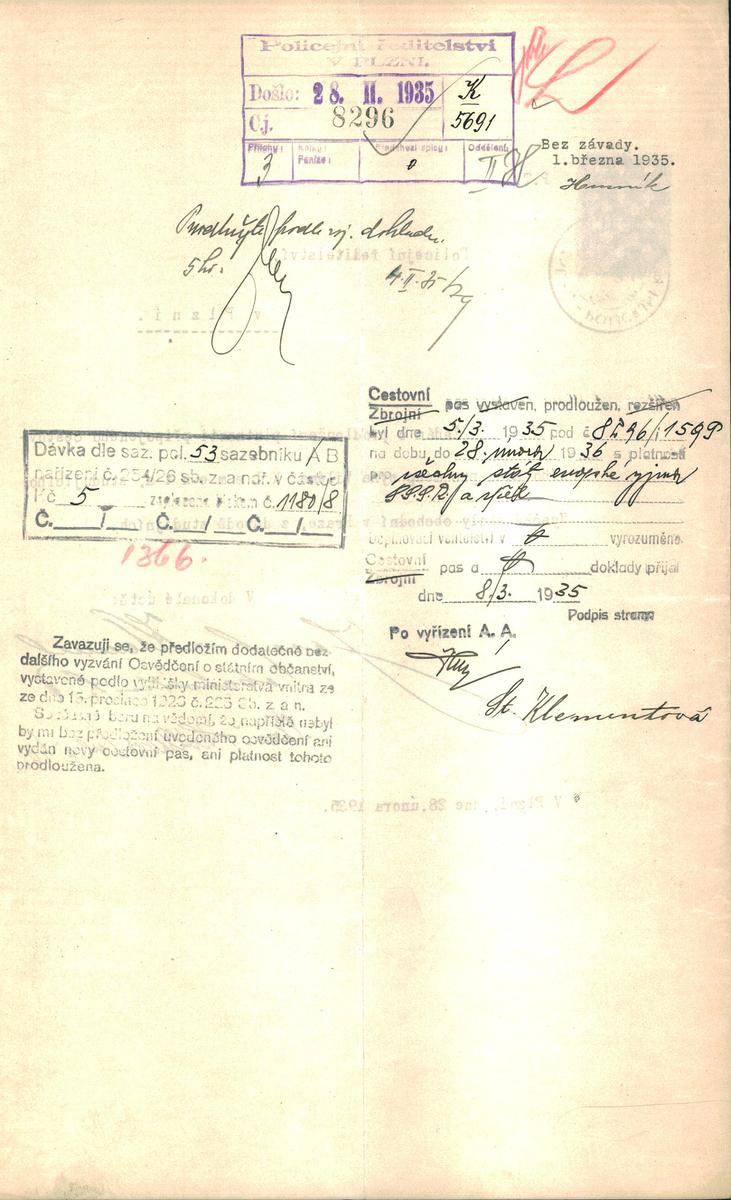 Policejní ředitelství
V PLZNI.
Došlo: 28. II. 1935
K
5691
Čj. 8296
Přílohy:
3
Kolky:
Peníze:
Předchozí spisy:
0
Oddělení:
II
Bez závady.
1.března 1935.
podle voj. dokladu.
5 hr.
Policejní ředitelství
v Plzni.
Cestovní
Zbrojní
pas vystaven, prodloužen, rozšířen
byl dne 5./3. 1935 pod č.
na dobu do 28. února 1936 s platností
pro všechny státy evropské vyjma
S.S.S.R.
Doplňovací velitelství v vyrozuměno.
Cestovní
Zbrojní
pas a doklady přijal
dne 8/3. 1935
Podpis strany
Po vyřízení A. A.
St. Klementová
Dávka dle saz. pol. 53 sazebníku A B
nařízení č. 254/26 sb. z. a nař. v částce
Kč 5 zaplacena blokem č. 1180/8
Č. / Č. / Č. /
1366.
Zavazuji se, že předložím dodatečně bez
dalšího vyzvání Osvědčení o státním občanství,
vystavené podle vyhlášky ministerstva vnitra ze
ze dne 15. prosince 1926 č. 225 Sb. z. a n.
Současně beru na vědomí, že napříště nebyl
by mi bez předložení uvedeného osvědčení ani
vydán nový cestovní pas, ani platnost tohoto
prodloužena.
V Plzni, dne 28.února 1935.